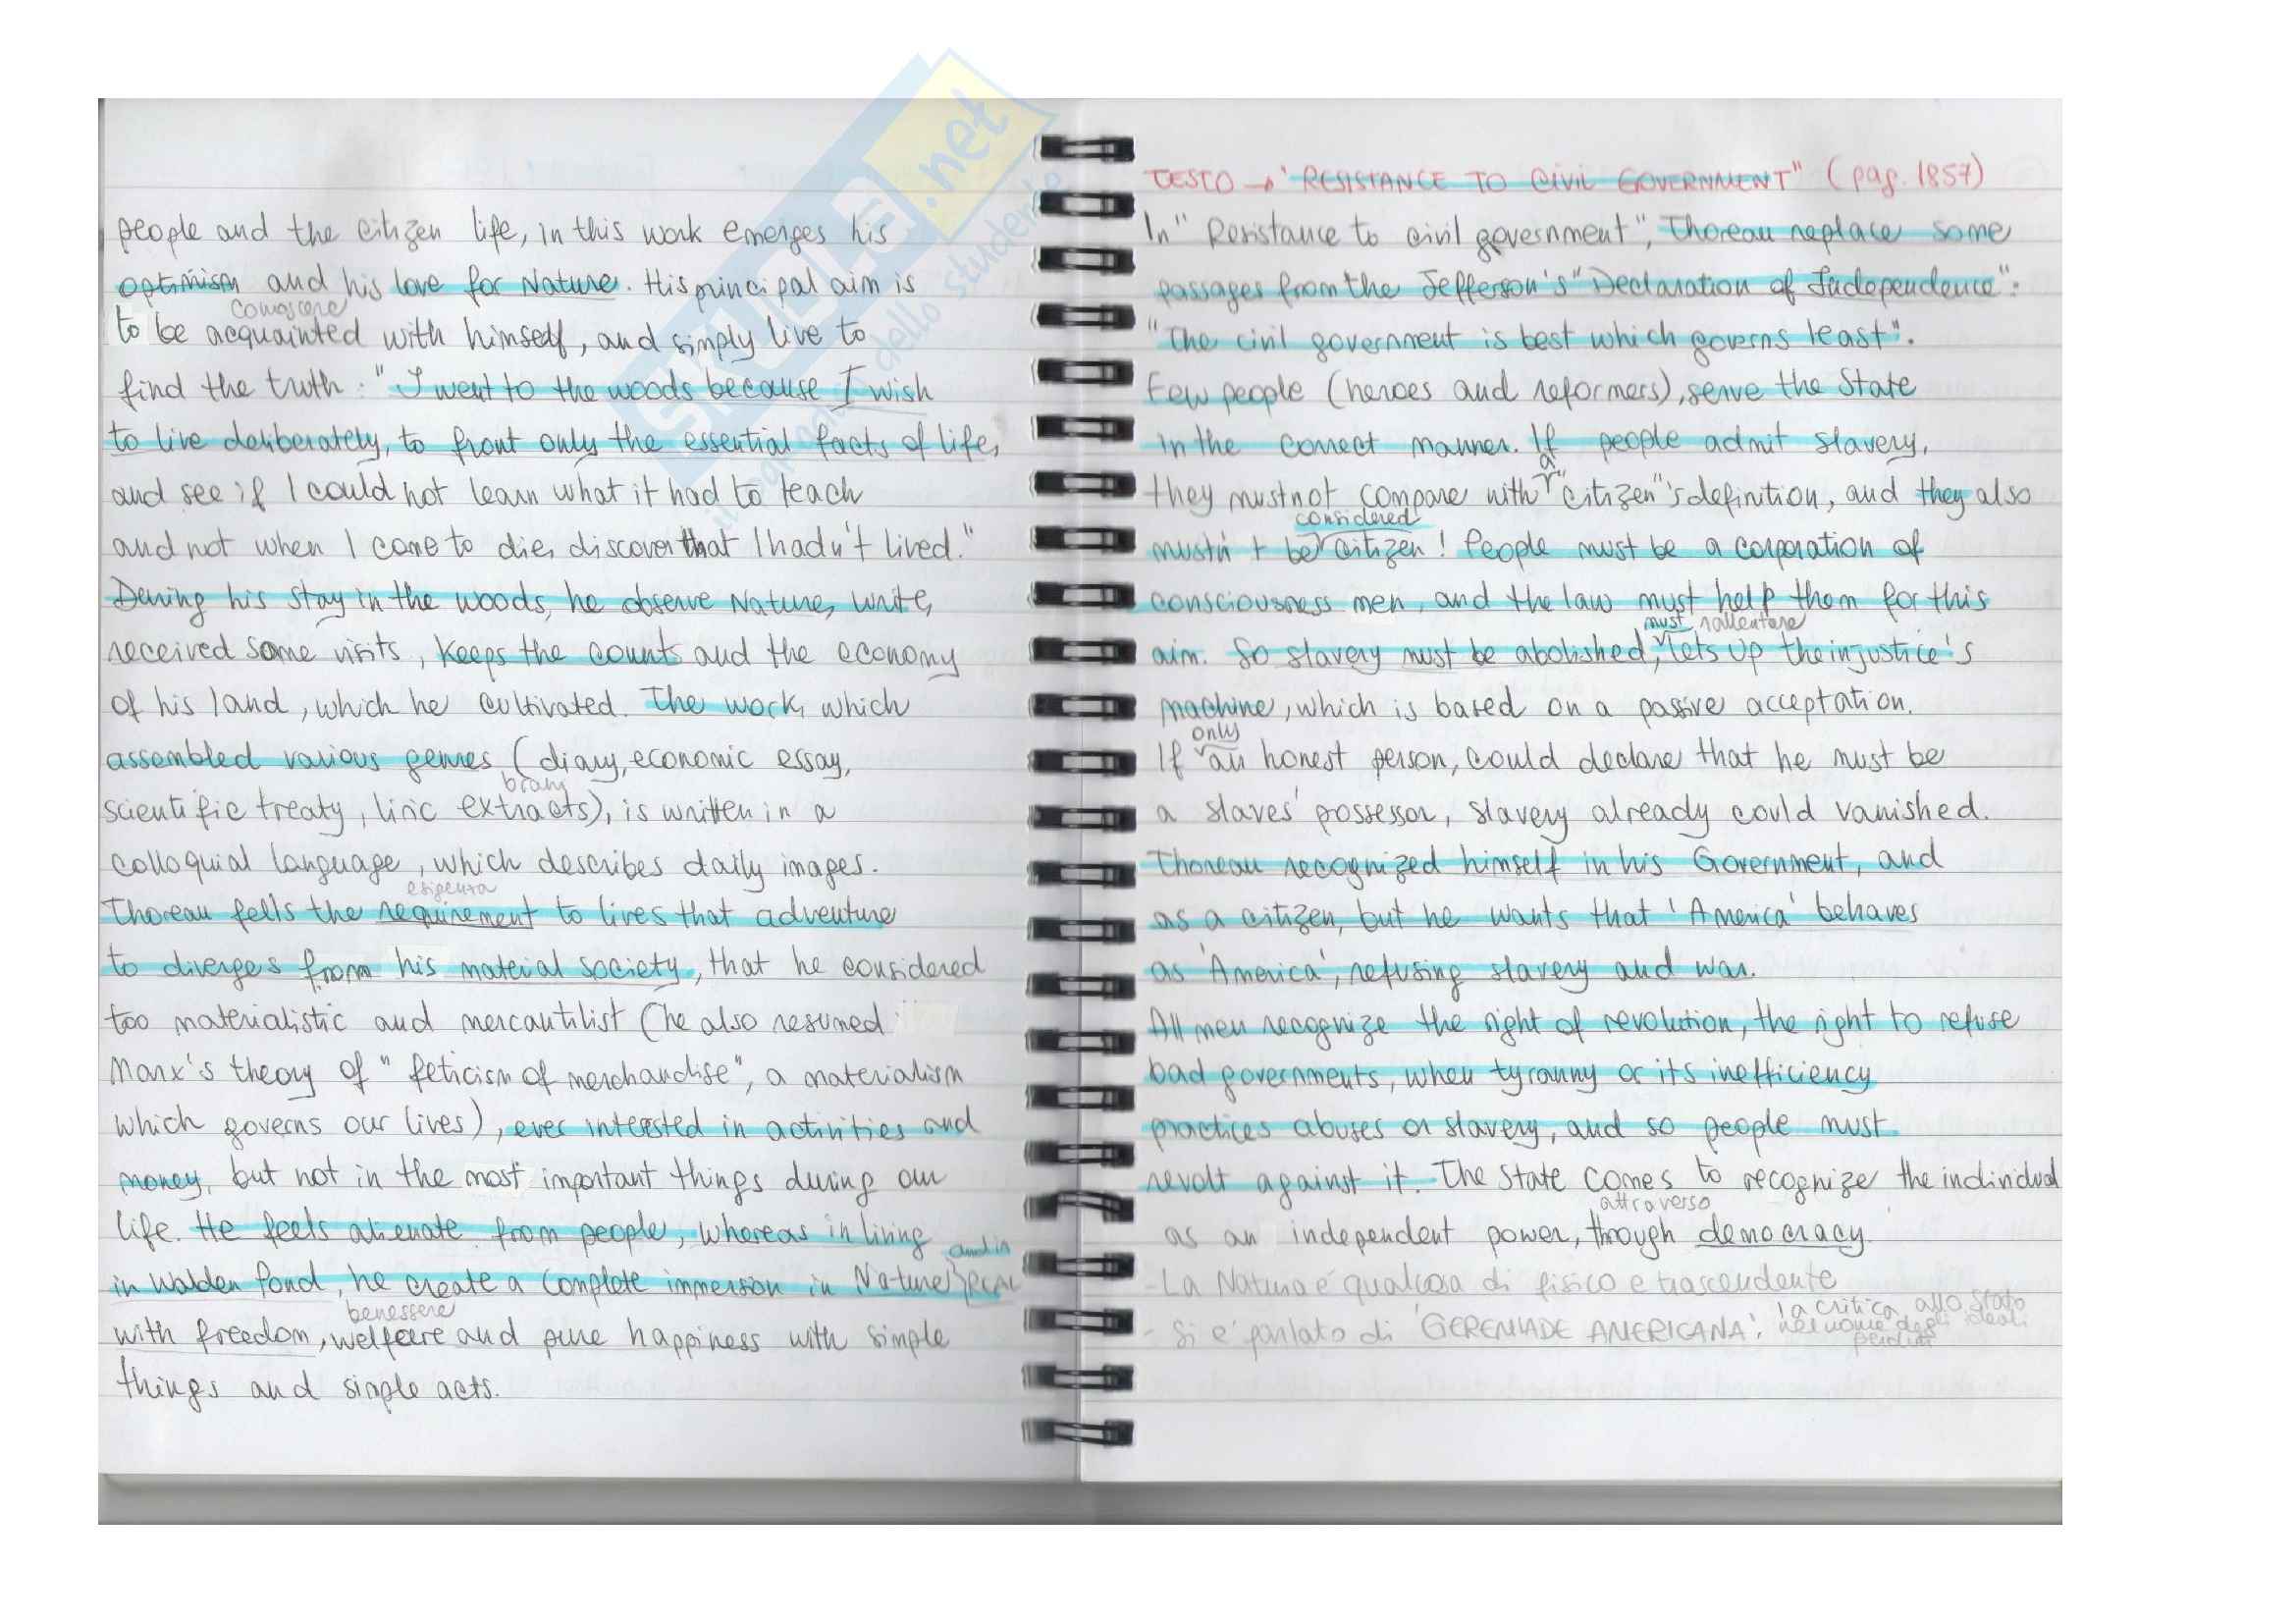 people and the citizen life, in this work emerges his
optimism and his love for Nature. His principal aim is
conoscere
to be acquainted with himself, and simply live to
find the truth: "I went to the woods because I wish
to live deliberately, to front only the essential facts of life,
and see if I could not learn what it had to teach
and not when I come to die, discover that I hadn't lived."
During his stay in the woods, he observe Nature, write,
received some visits, keeps the counts and the economy
of his land, which he cultivated. The work, which
assembled various genres (diary, economic essay,
brani
scientific treaty, liric extracts), is written in a
colloquial language, which describes daily images.
esigenza
Thoreau fells the requirement to lives that adventure
to diverges from his material society, that he considered
too materialistic and mercantilist (he also resumed
Marx's theory of "feticism of merchandise", a materialism
which governs our lives), ever interested in activities and
money, but not in the most important things during our
life. He feels alienate from people, whereas in living
and in
in Walden Pond, he create a complete immersion in Nature, REAL
benessere
with freedom, welfare and pure happiness with simple
things and simple acts.
TESTO → "RESISTANCE TO CIVIL GOVERNMENT" (pag. 1857)
In "Resistance to civil government", Thoreau replace some
passages from the Jefferson's "Declaration of Independence":
"The civil government is best which governs least".
Few people (heroes and reformers), serve the State
in the correct manner. If people admit slavery,
a
they must not compare with "citizen"'s definition, and they also
considered
mustn't be citizen! People must be a corporation of
consciousness men, and the law must help them for this
must rallentare
aim. So slavery must be abolished, lets up the injustice's
machine, which is based on a passive acceptation.
only
If an honest person, could declare that he must be
a slaves' possessor, slavery already could vanished.
Thoreau recognized himself in his Government, and
as a citizen, but he wants that 'America' behaves
as 'America', refusing slavery and war.
All men recognize the right of revolution, the right to refuse
bad governments, when tyranny or its inefficiency
practices abuses or slavery, and so people must
revolt against it. The State comes to recognize the individual
attraverso
as an independent power, though democracy.
- La Natura è qualcosa di fisico e trascendente
- Si è parlato di 'GEREMIADE AMERICANA', la critica allo stato
nel nome degli ideali
perduti
SKUOLA.net